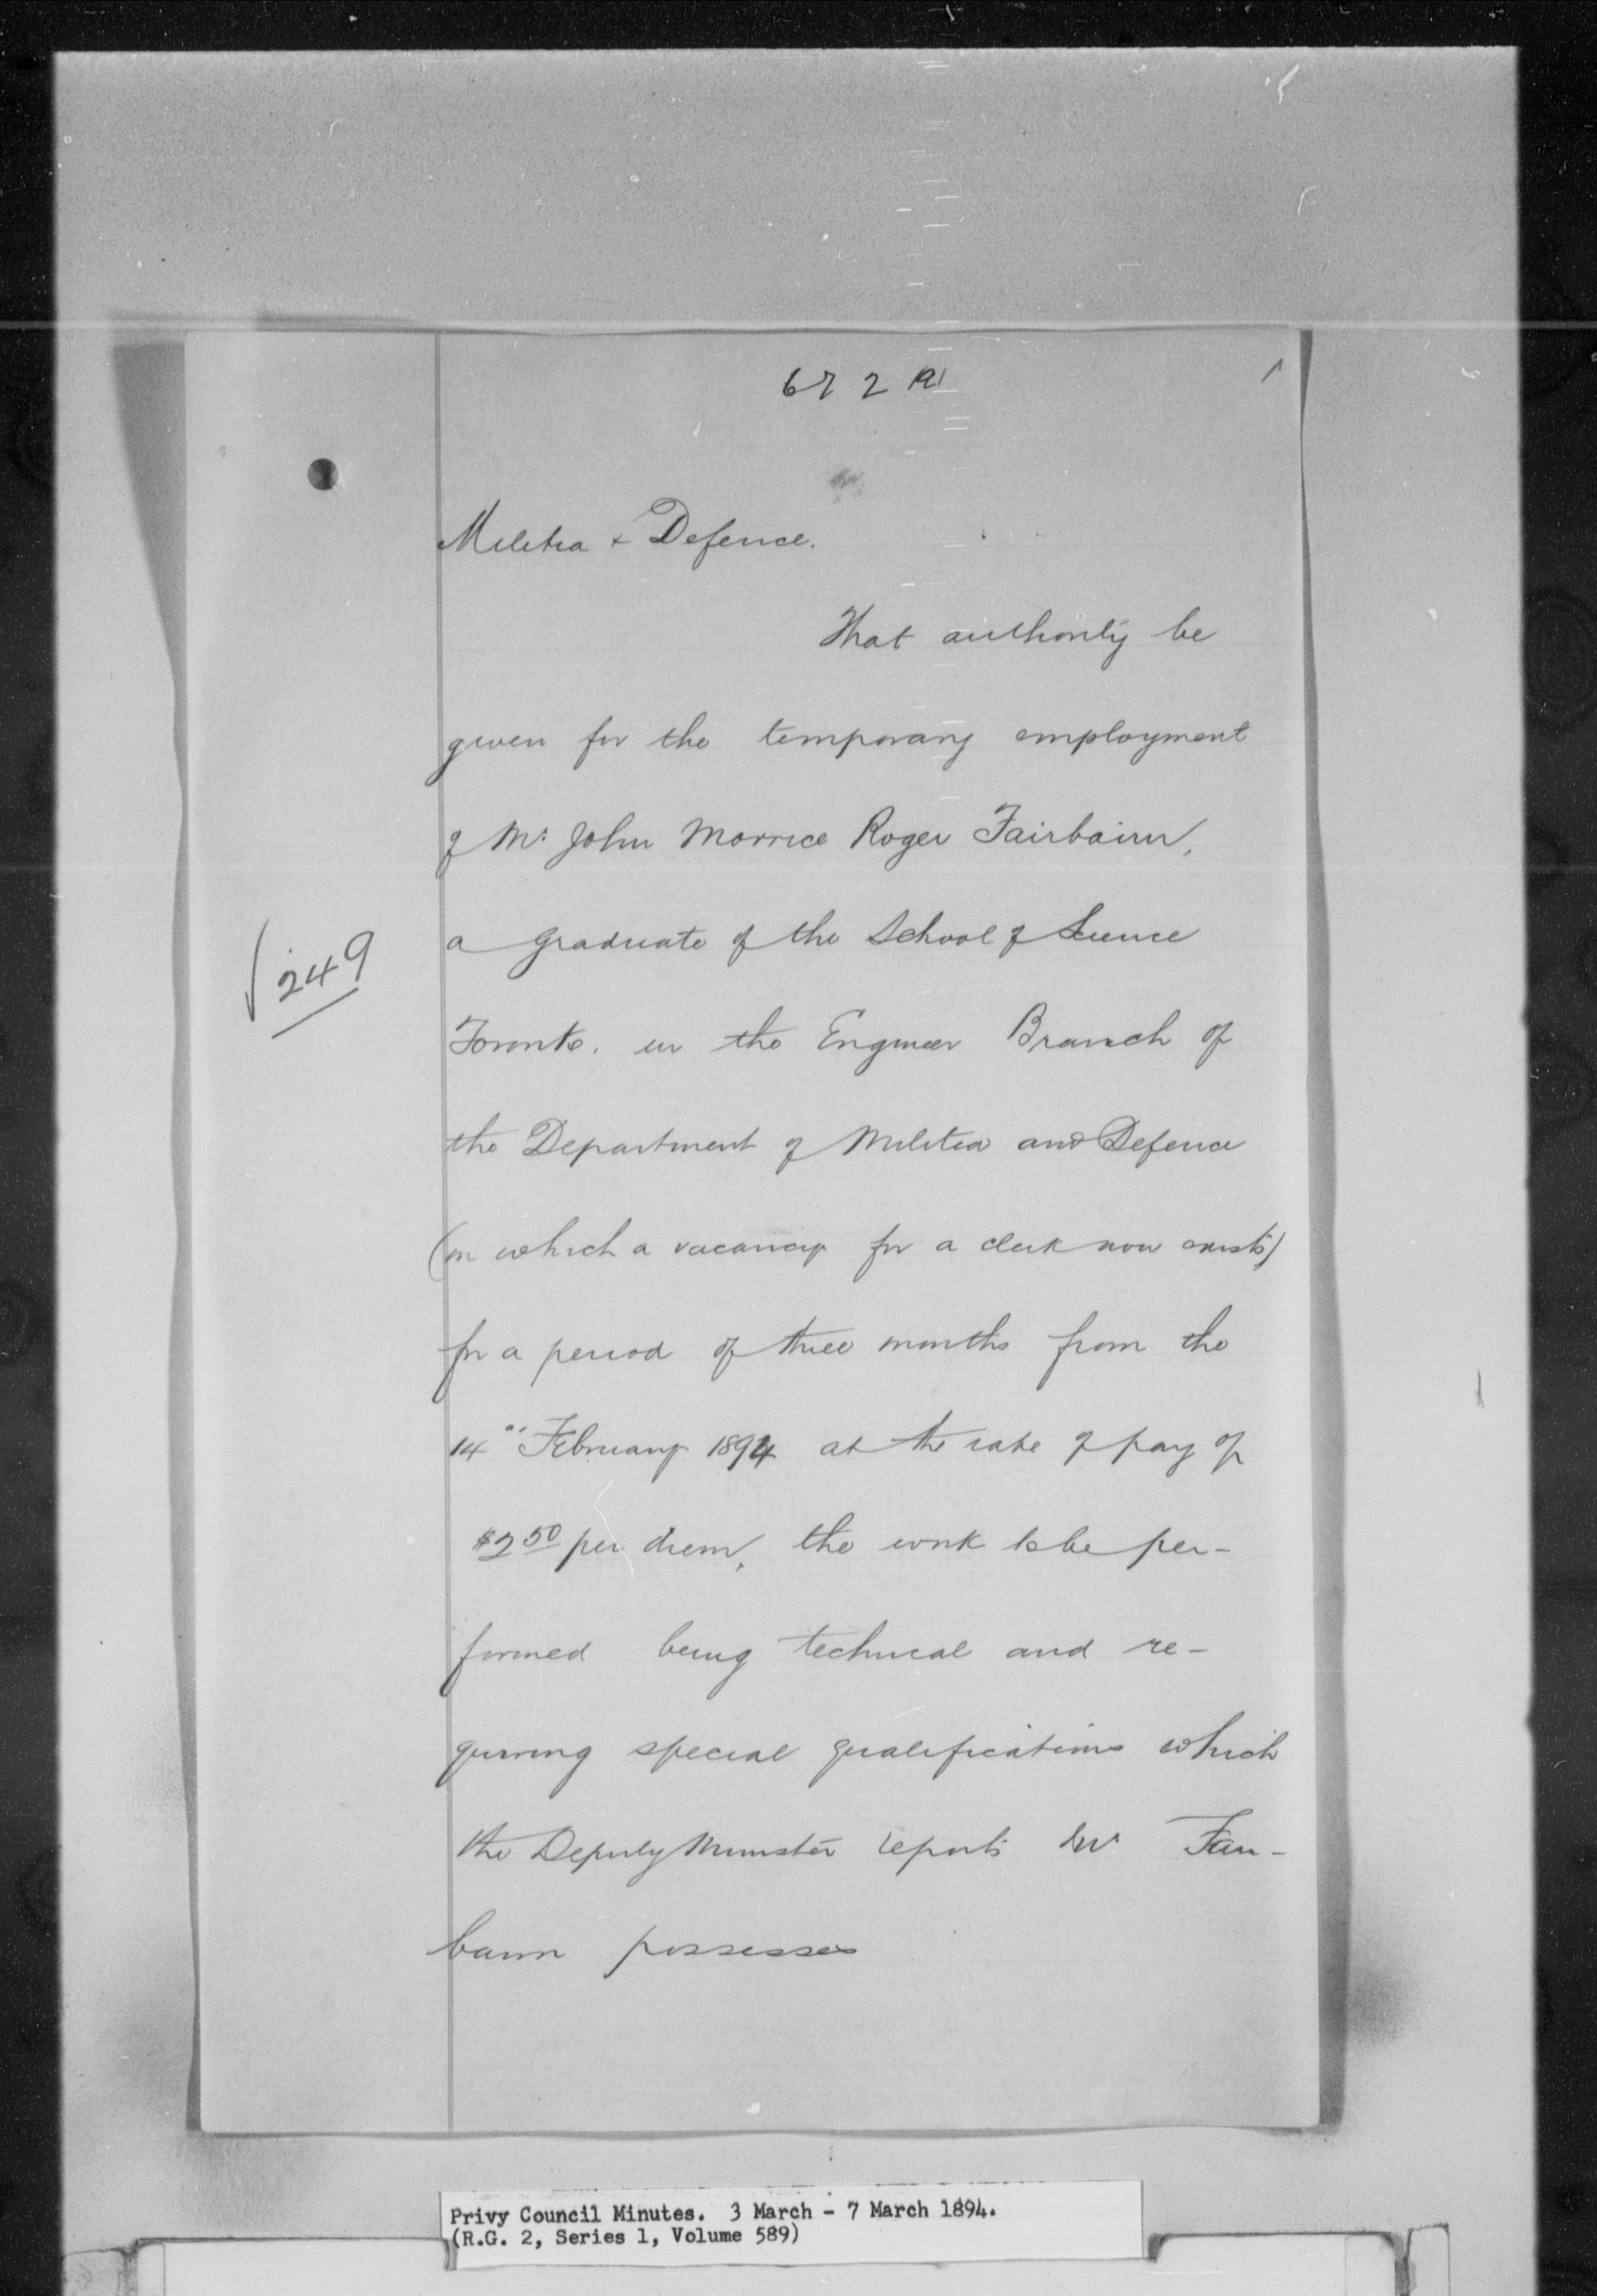 672 a
Militia & Defence.
That authority be
given for the temporary employment
of Mr. John Morrice Roger Fairbairn,
a graduate of the School of Science
Toronto, in the Engineer Branch of
the Department of Militia and Defence
(in which a vacancy for a clerk now exists)
for a period of three months from the
√249
14" February 1894 at the rate of pay of
$2 50 per diem, the work to be per-
formed being technical and re-
quiring special qualifications which
the Deputy Minister reports Mr Fair-
bairn possesses
Privy Council Minutes. 3 March - 7 March 1894.
(R.G. 2, Series 1, Volume 589)